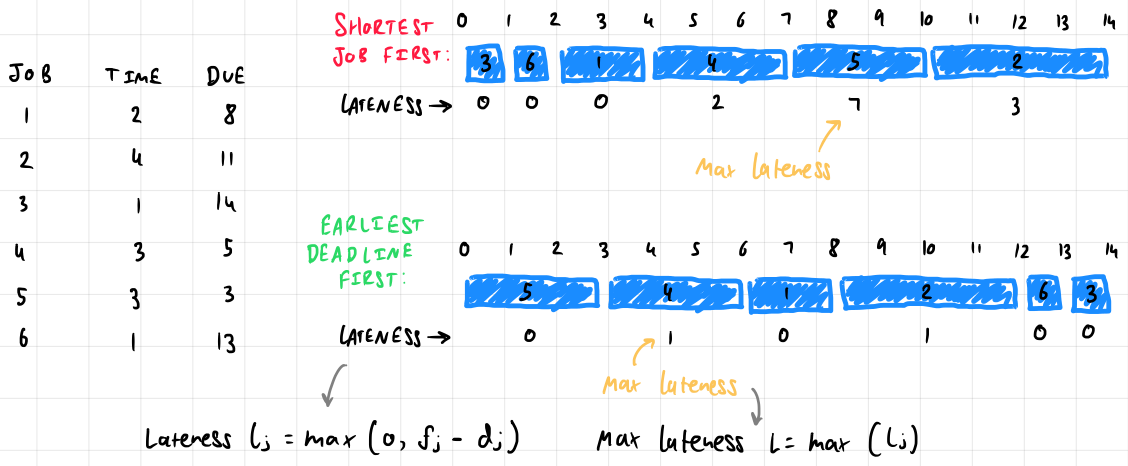 JOB TIME DUE
1 2 8
2 4 11
3 1 14
4 3 5
5 3 3
6 1 13
SHORTEST
JOB FIRST:
0 1 2 3 4 5 6 7 8 9 10 11 12 13 14
3 6 1 4 5 2
LATENESS → 0 0 0 2 7 3
Max lateness
EARLIEST
DEADLINE
FIRST:
0 1 2 3 4 5 6 7 8 9 10 11 12 13 14
5 4 1 2 6 3
LATENESS → 0 1 0 1 0 0
Max lateness
Lateness lj = max (0, fj - dj)
Max lateness L = max (lj)